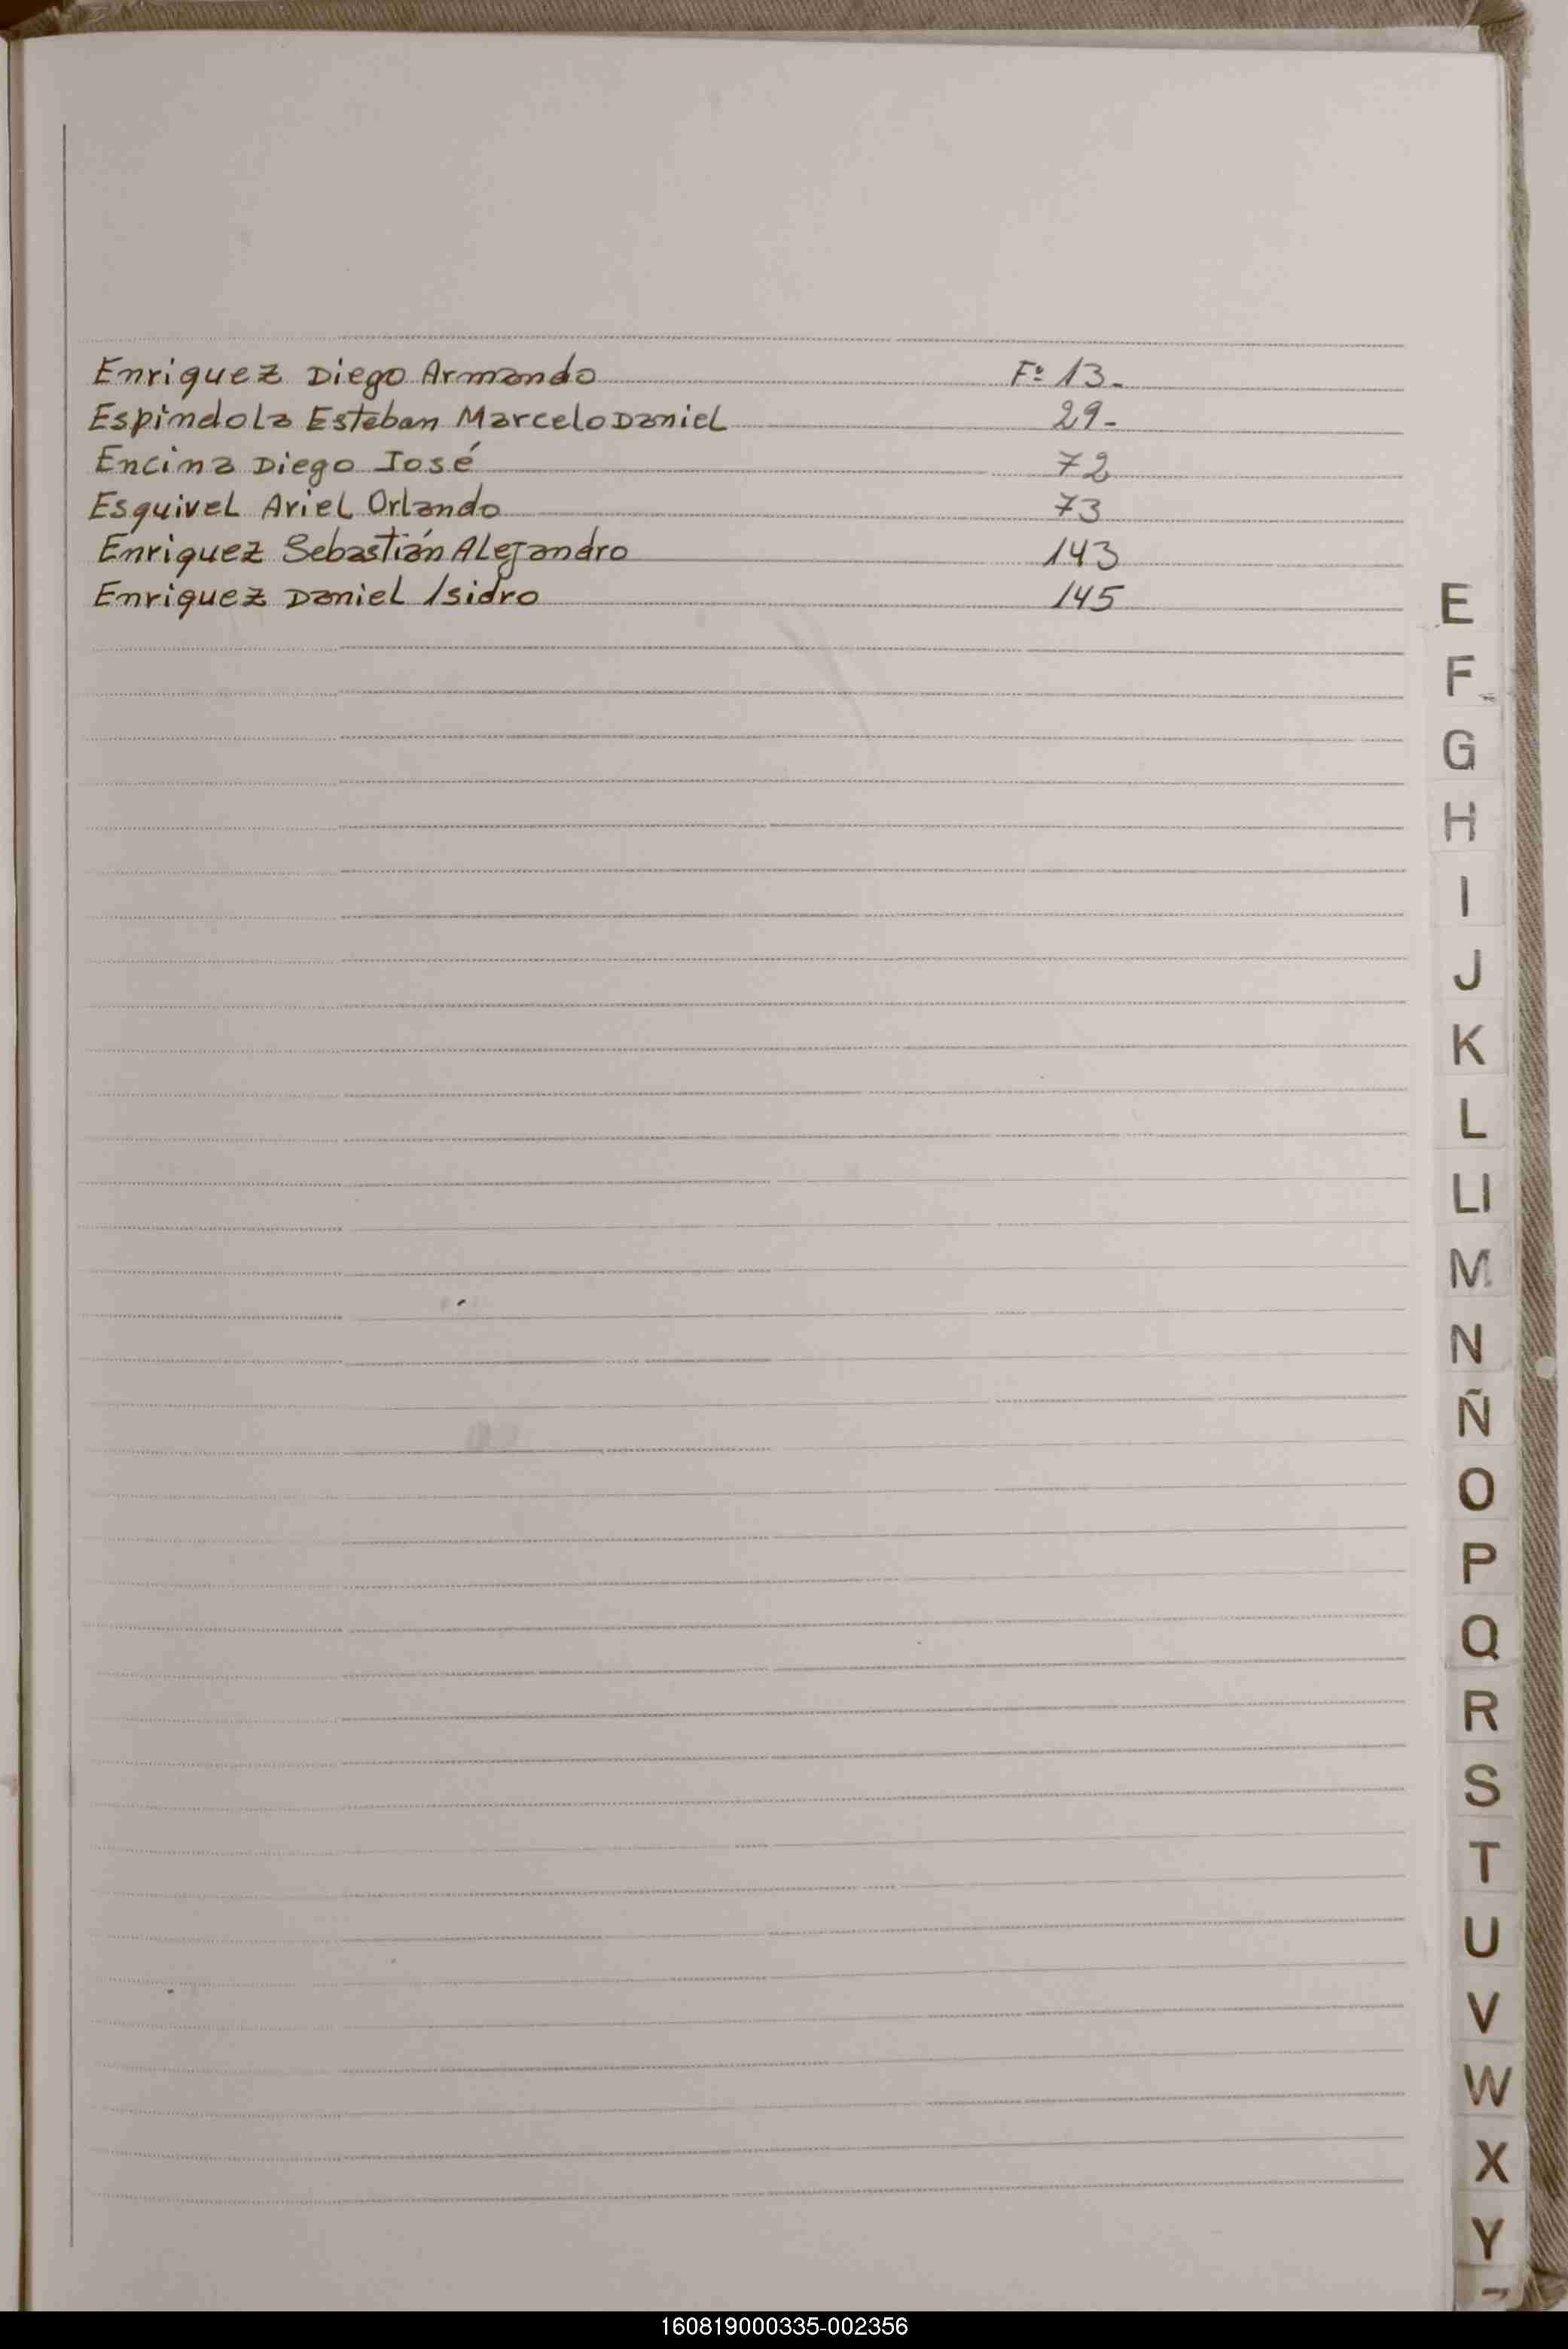 Enriquez Diego Armando F: 13-
Espindola Esteban Marcelo Daniel 29-
Encina Diego José 72
Esquivel Ariel Orlando 73
Enriquez Sebastián Alejandro 143
Enriquez Daniel Isidro 145
E
F
G
H
I
J
K
L
Ll
M
N
Ñ
O
P
Q
R
S
T
U
V
W
X
Y
160819000335-002356